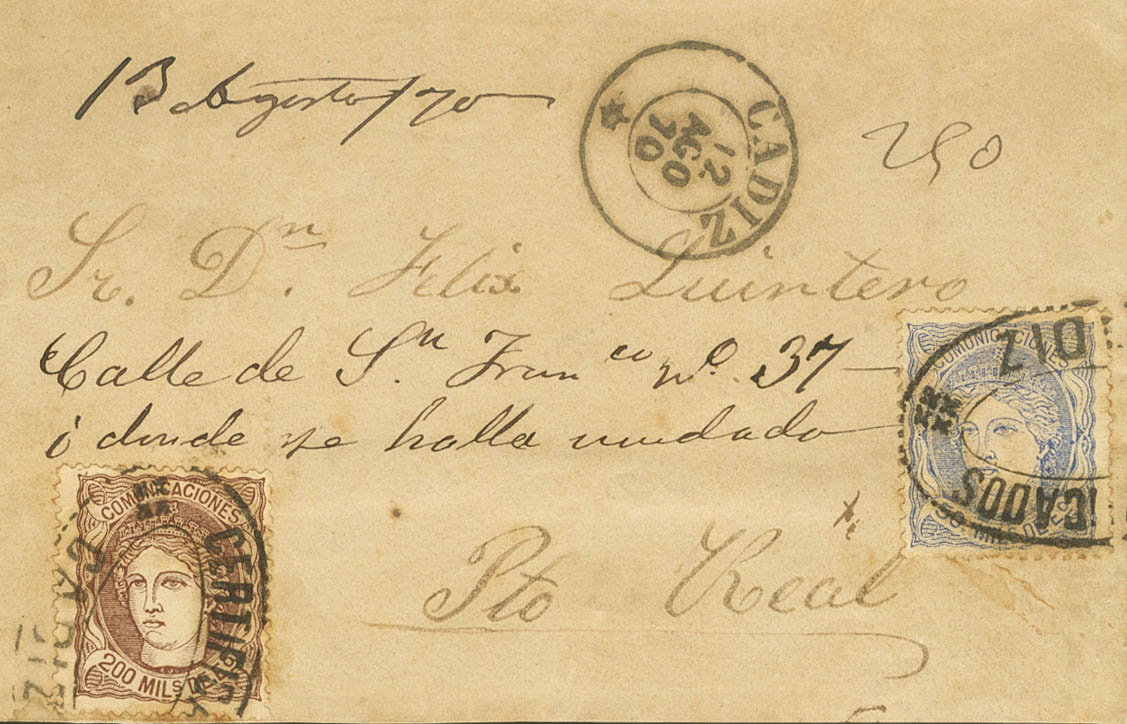 13 Agosto/70
CADIZ
12
AGO
70
250
Sr. Dn. Felix Quintero
Calle de Sn. Franco No. 37
ó donde se halla mudado
COMUNICACIONES
DIZ
ICADOS
50 MILS DE E
COMUNICACIONES
CERTIFIC
200 MILS DE
CADIZ
Pto Real